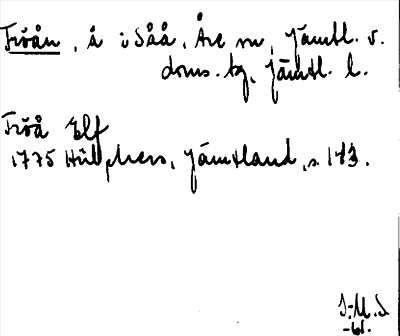 Fröån, å i Såå, Åre sn, Jämtl. v.
doms. tg, Jämtl. l.
Fröå Elf
1775 Hülphers, Jämtland, s. 143.
J-M. S
-61.